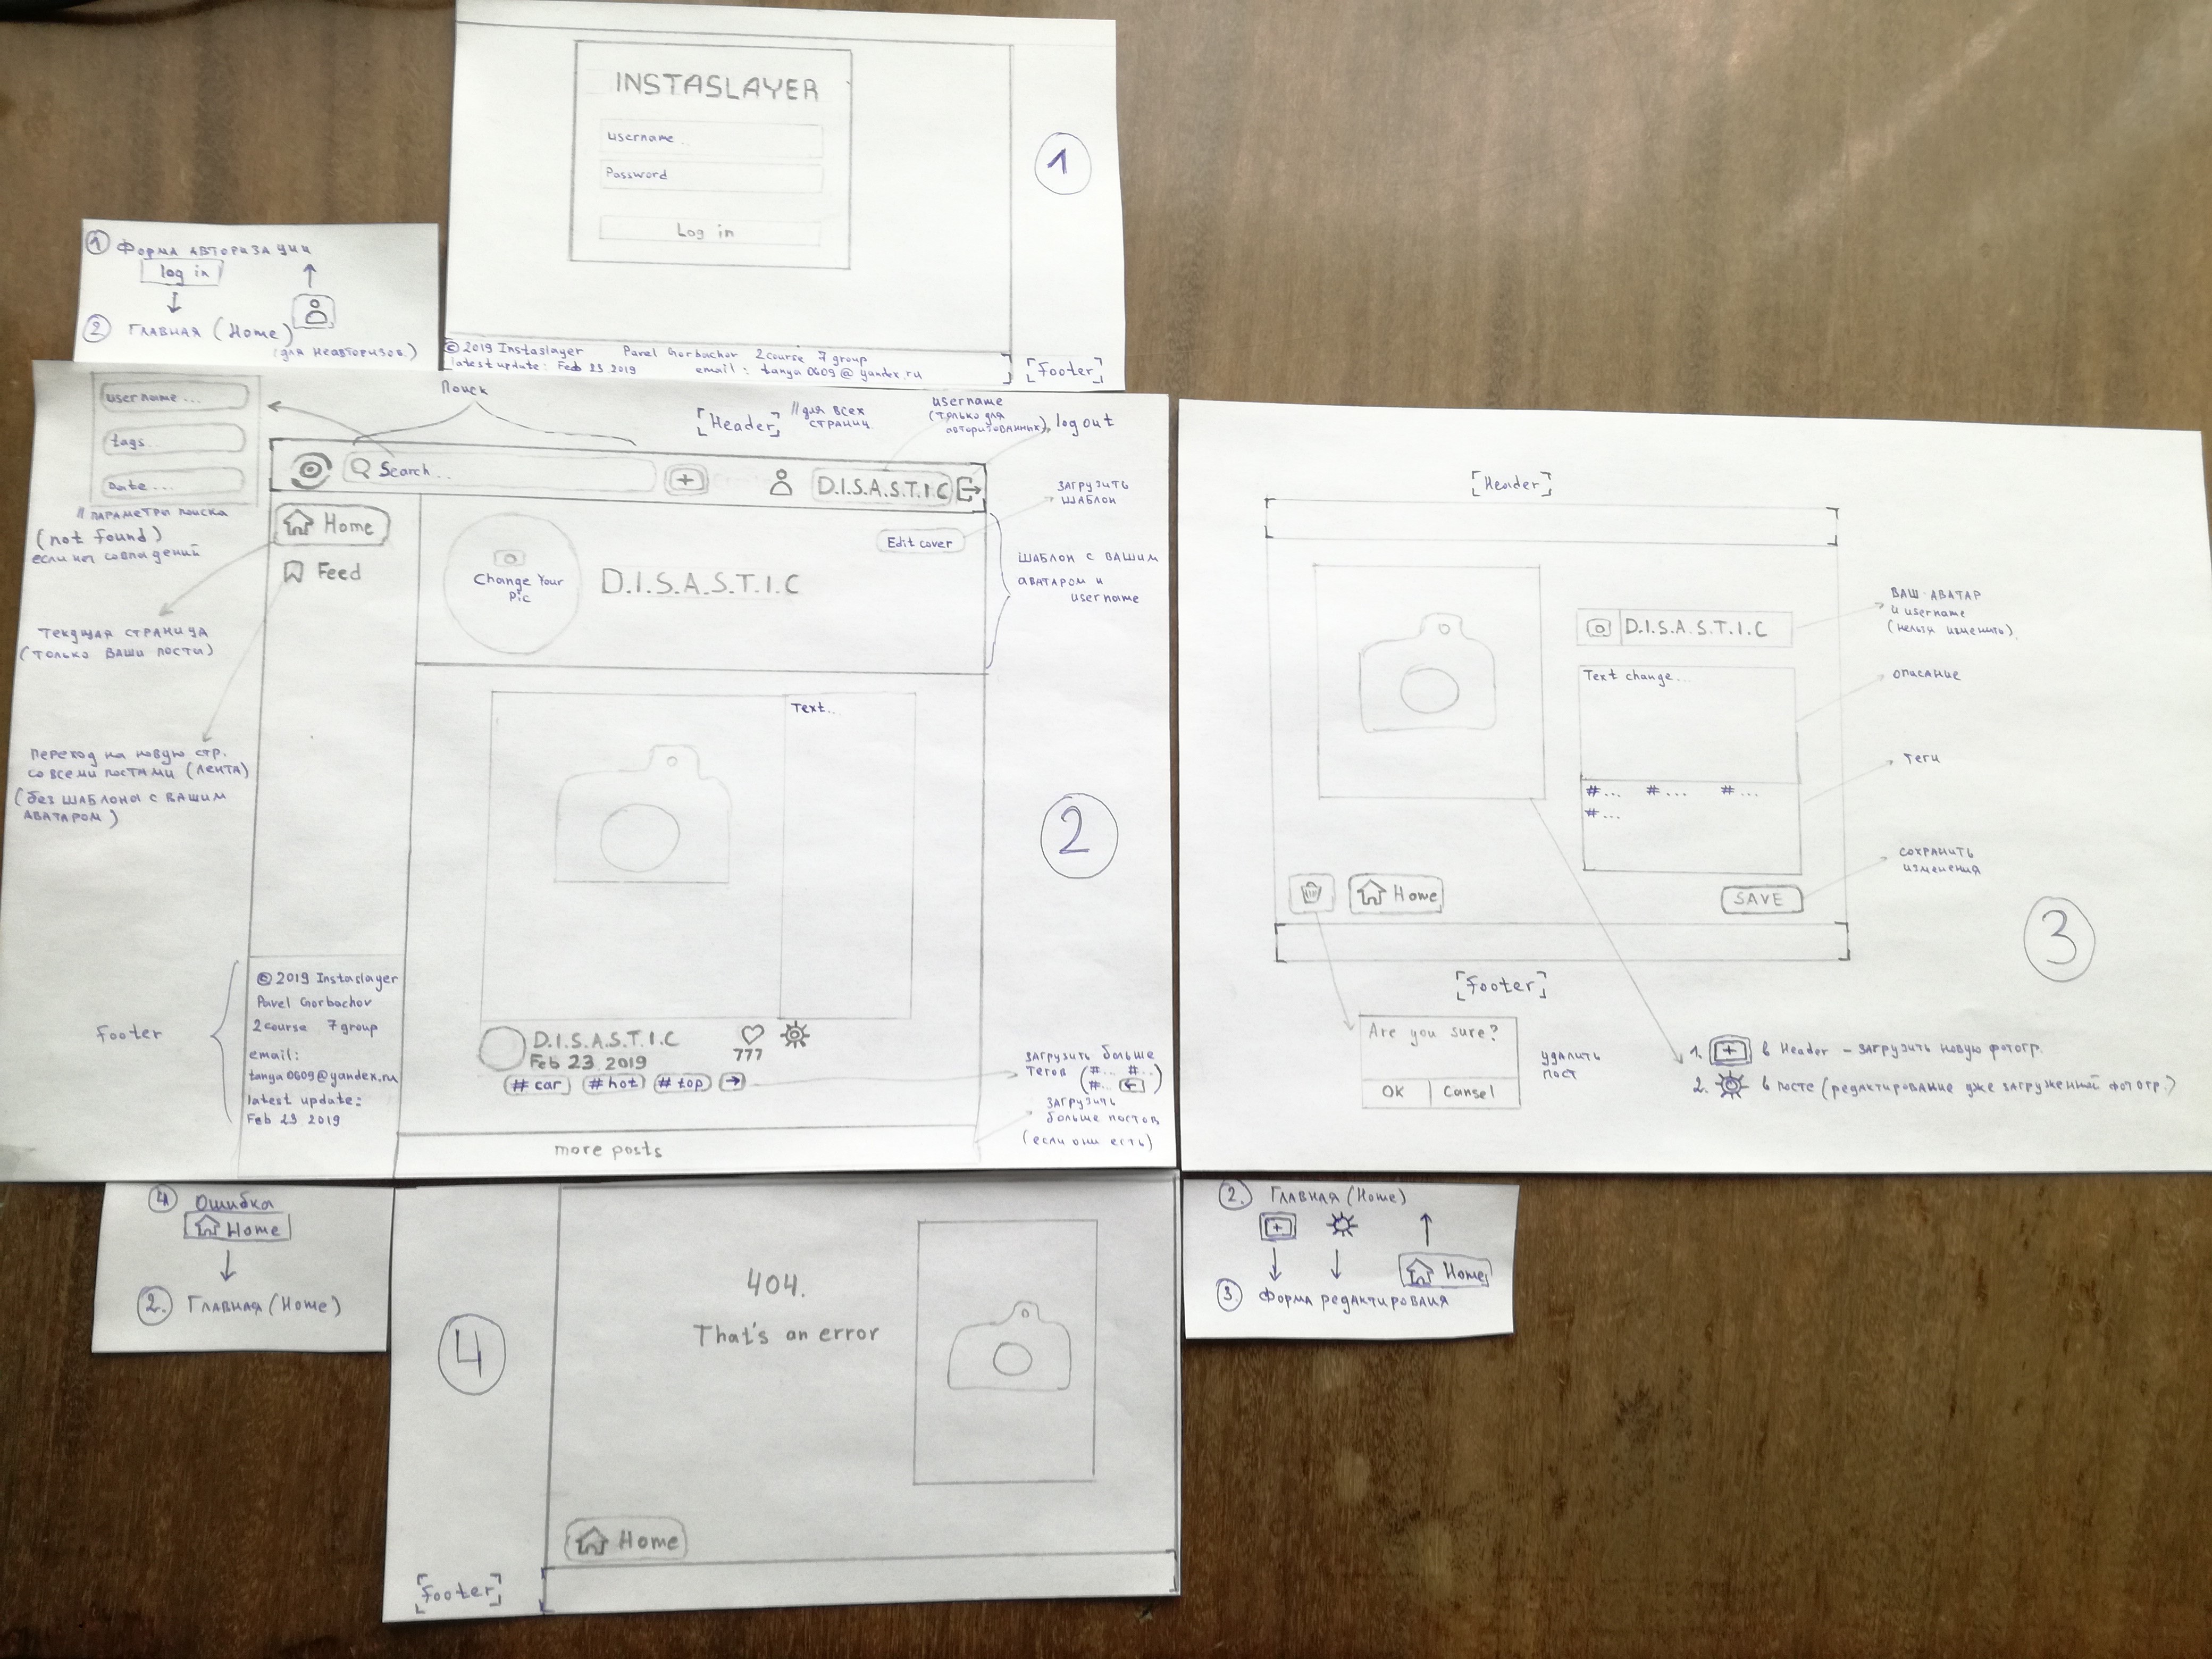 INSTASLAYER
username..
Password
Log in
1
© 2019 Instaslayer Pavel Gorbachov 2course 7 group
latest update: Feb 23 2019 email: tanya0609@yandex.ru
[Footer]
1 Форма авторизации
log in
2 Главная (Home)
(для неавторизов.)
username...
tags
Date...
// параметры поиска
(not found)
если нет совпадений
Поиск
[Header] // для всех
страниц
username
(только для
авторизованных)
log out
Search..
+
D.I.S.A.S.T.I.C
загрузить
шаблон
Home
Feed
Edit cover
Change Your
Pic
D.I.S.A.S.T.I.C
шаблон с вашим
аватаром и
username
Текущая страница
(только ваши посты)
Переход на новую стр.
со всеми постами (лента)
(без шаблона с вашим
аватаром)
Text..
2
Footer
© 2019 Instaslayer
Pavel Gorbachov
2course 7 group
email:
tanya0609@yandex.ru
latest update:
Feb 23 2019
D.I.S.A.S.T.I.C
Feb 23 2019
777
#car #hot #top →
загрузить больше
тегов (#... #..
#... ←)
загрузить
больше постов
(если они есть)
more posts
[Header]
D.I.S.A.S.T.I.C
Ваш аватар
и username
(нельзя изменить).
Text change...
описание
теги
#... #... #...
#...
сохранить
изменения
Home
SAVE
3
[Footer]
Are you sure?
OK | Cansel
удалить
пост
1. + в Header - загрузить новую фотогр.
2. в посте (редактирование уже загруженной фотогр.)
4 Ошибка
Home
2. Главная (Home)
4
404.
That's an error
Home
[Footer]
2. Главная (Home)
+
Home
3. Форма редактирования